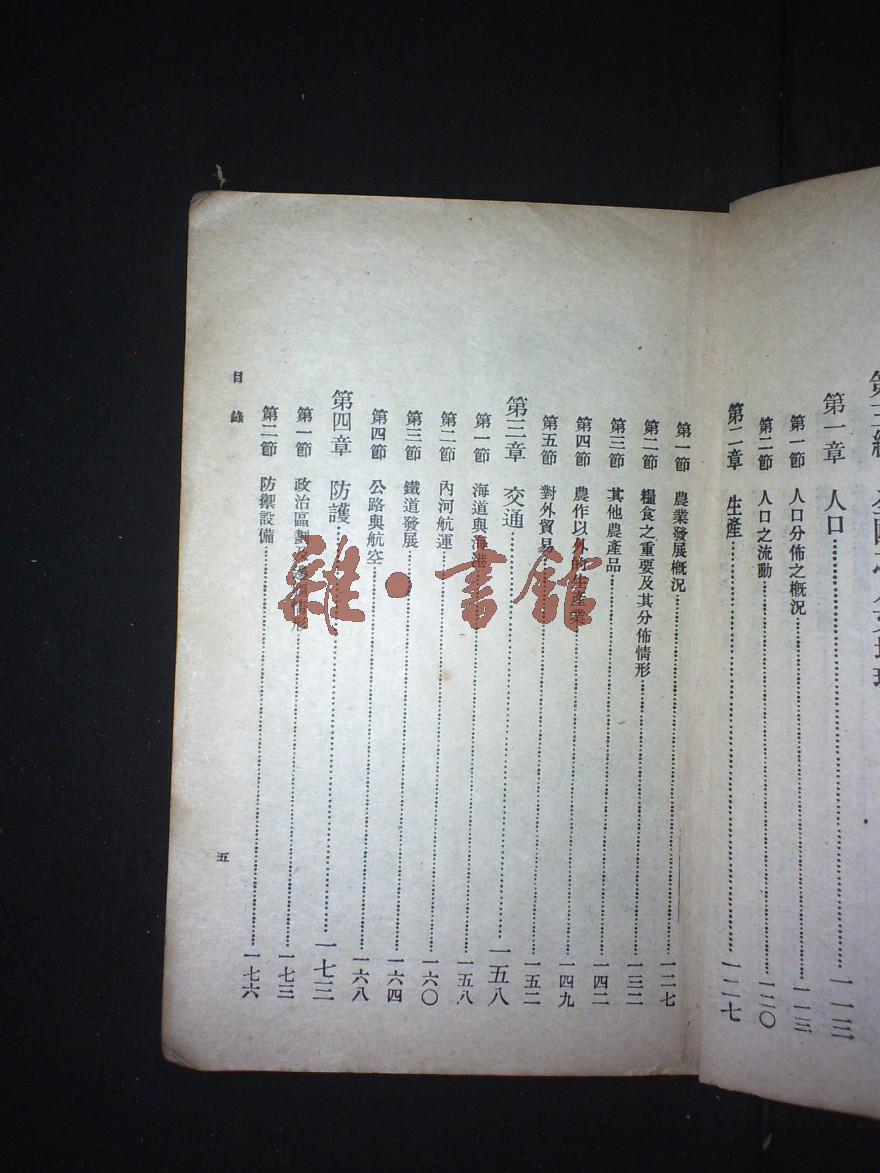 第三編 全國之人文地理
第一章 人口……一一三
第一節 人口分佈之概況……一一三
第二節 人口之流動……一二〇
第二章 生產……一二七
第一節 農業發展概況……一二七
第二節 糧食之重要及其分佈情形……一三二
第三節 其他農產品……一四二
第四節 農作以外的生產業……一四九
第五節 對外貿易……一五二
第三章 交通……一五八
第一節 海道與海港……一五八
第二節 內河航運……一六〇
第三節 鐵道發展……一六四
第四節 公路與航空……一六八
第四章 防護……一七三
第一節 政治區劃及邊防情形……一七三
第二節 防禦設備……一七六
目錄
五
雜·書館